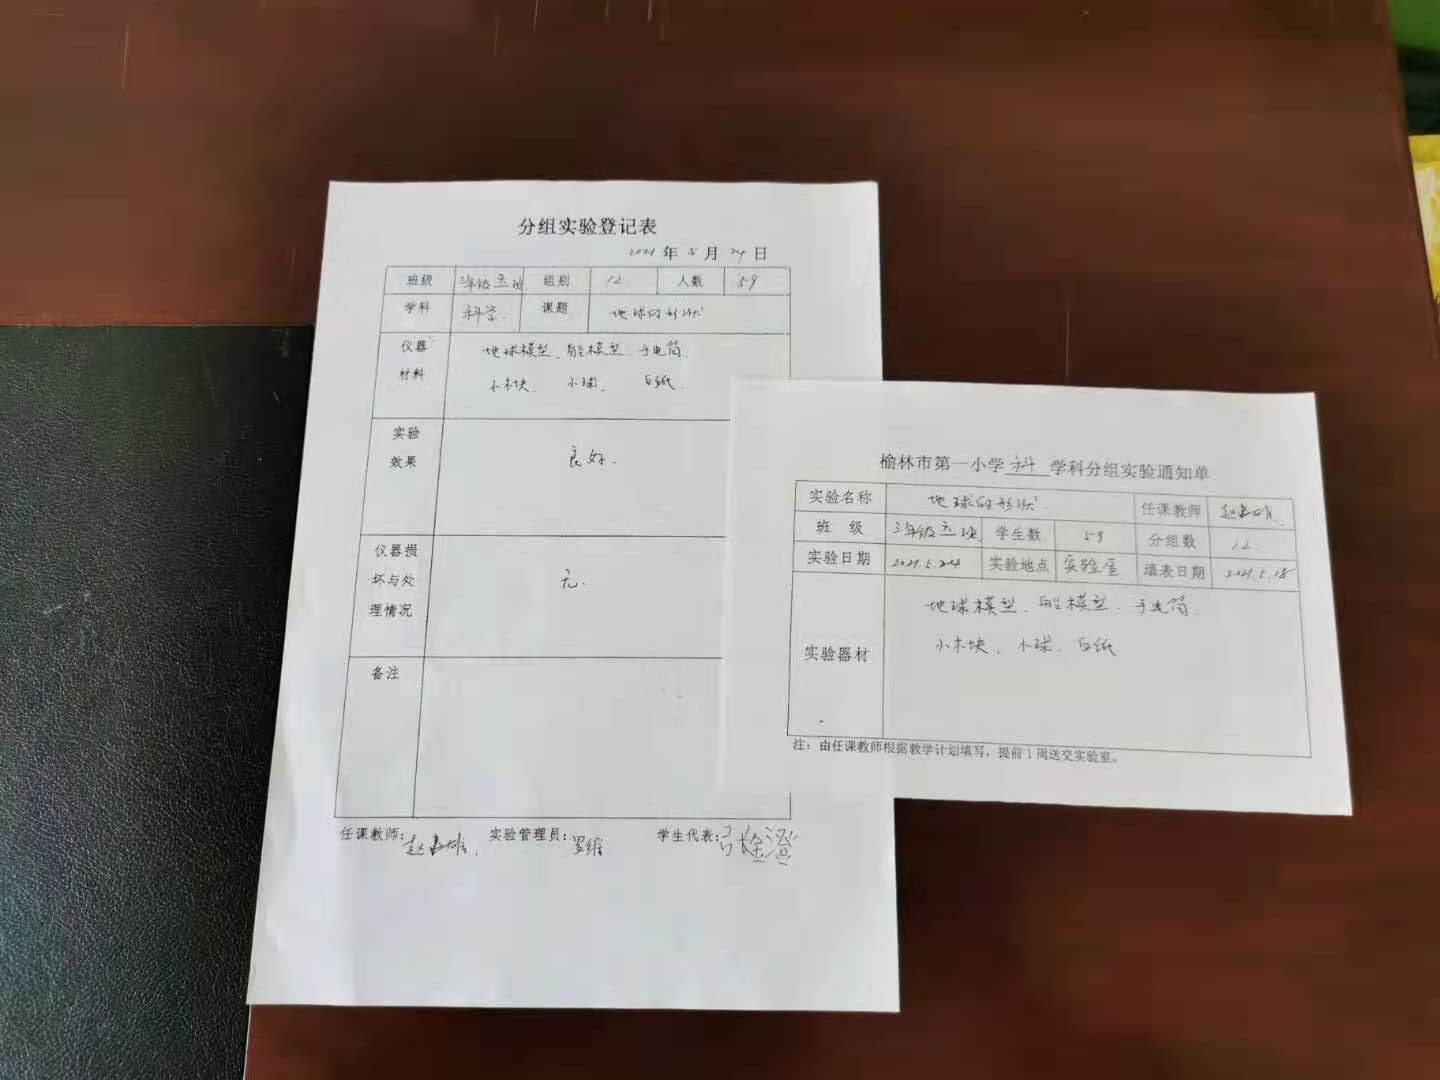 分组实验登记表
2021年5月24日
班级 三年级五班 组别 12 人数 59
学科 科学. 课题 地球的形状
仪器材料 地球模型、船模型、手电筒、
小木块、小球、白纸.
实验效果 良好.
仪器损坏与处理情况 无.
备注
任课教师: 实验管理员:罗维 学生代表:
榆林市第一小学科学科分组实验通知单
实验名称 地球的形状. 任课教师
班 级 三年级五班 学生数 59 分组数 12.
实验日期 2021.5.24 实验地点 实验室 填表日期 2021.5.18
实验器材 地球模型、船模型、手电筒、
小木块、小球、白纸
注：由任课教师根据教学计划填写，提前1周送交实验室。